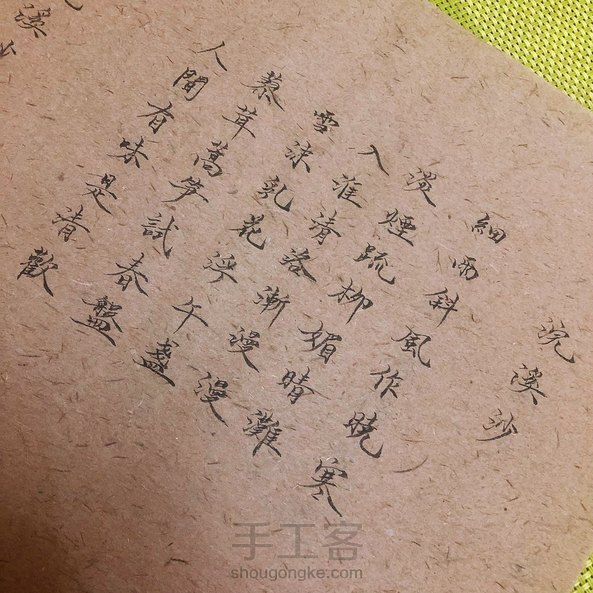 浣溪沙
細雨斜風作曉寒
淡煙疏柳媚晴灘
入淮清落漸漫漫
雪沫乳花浮午盞
蓼茸蒿筍試春盤
人間有味是清歡
溪
手工客
shougongke.com